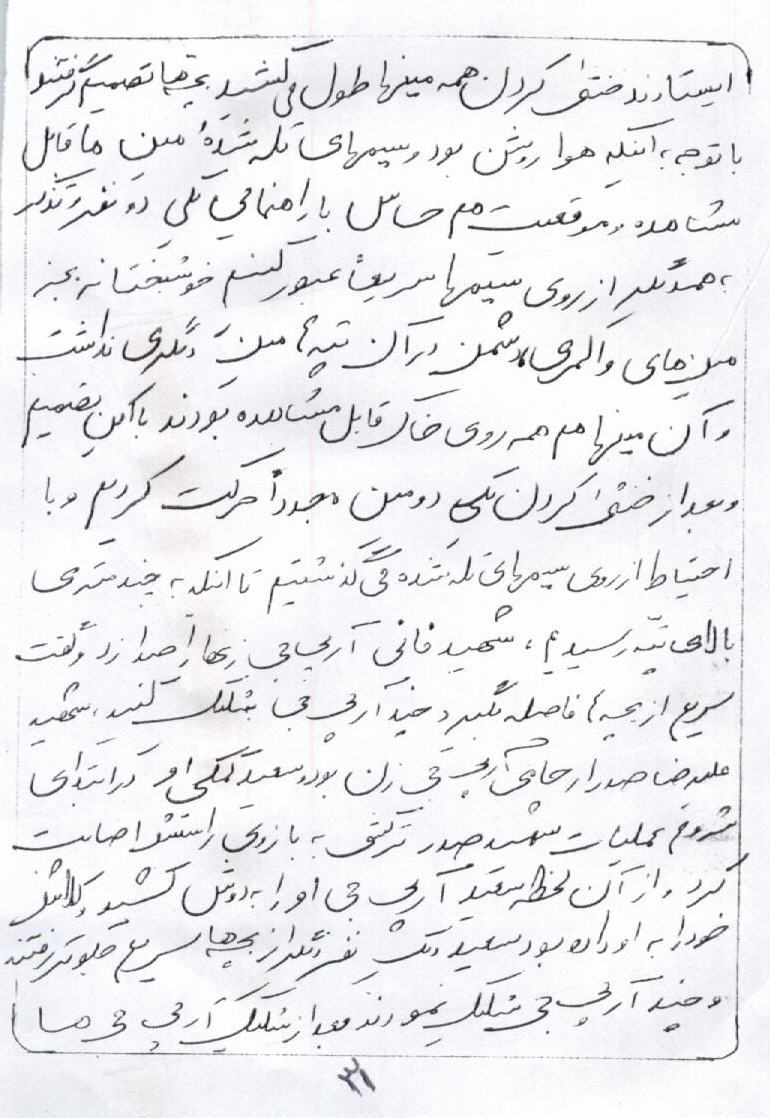 ایستادند خنثی کردن همه مینها طول می کشید بچه ها تصمیم گرفتند
با توجه به اینکه هوا روشن بود و سیمهای تله شدهٔ مین ها قابل
مشاهده و موقعیت هم حساس با راهنمایی یکی دو نفر و تذکر
به همدیگر از روی سیمها سریعاً عبور کنیم خوشبختانه بجز
مین های والمری دشمن در آن تپه ها مین دیگری نداشت
و آن مینها هم همه روی خاک قابل مشاهده بودند با این تصمیم
و بعد از خنثی کردن یکی دو مین مجدداً حرکت کردیم و با
احتیاط از روی سیمهای تله شده می گذشتیم تا اینکه به چند متری
بالای تپه رسیدیم، شهید فانی آر پی جی زنها را صدا زد و گفت
سریع از بچه ها فاصله بگیرد و چند آر پی جی شلیک کنید، شهید
علیرضا صدر ارحامی آر پی جی زن بود و سعید کمکی او در ابتدای
شروع عملیات شهید صدر ترکشی به بازوی راستش اصابت
کرد و از آن لحظه سعید آر پی جی او را به دوش کشید و کلاش
خود را به او داده بود سعید و یک نفر دیگر از بچه ها سریع جلوتر رفتند
و چند آر پی جی شلیک نمودند و بعد از شلیک آر پی جی ها
۳۱